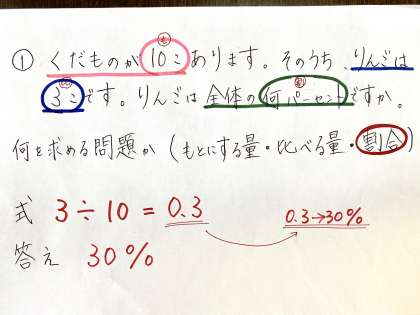 ① くだものが10こあります。そのうち、りんごは
3こです。りんごは全体の何パーセントですか。
何を求める問題か(もとにする量・比べる量・割合)
式 3÷10=0.3 0.3→30%
答え 30%